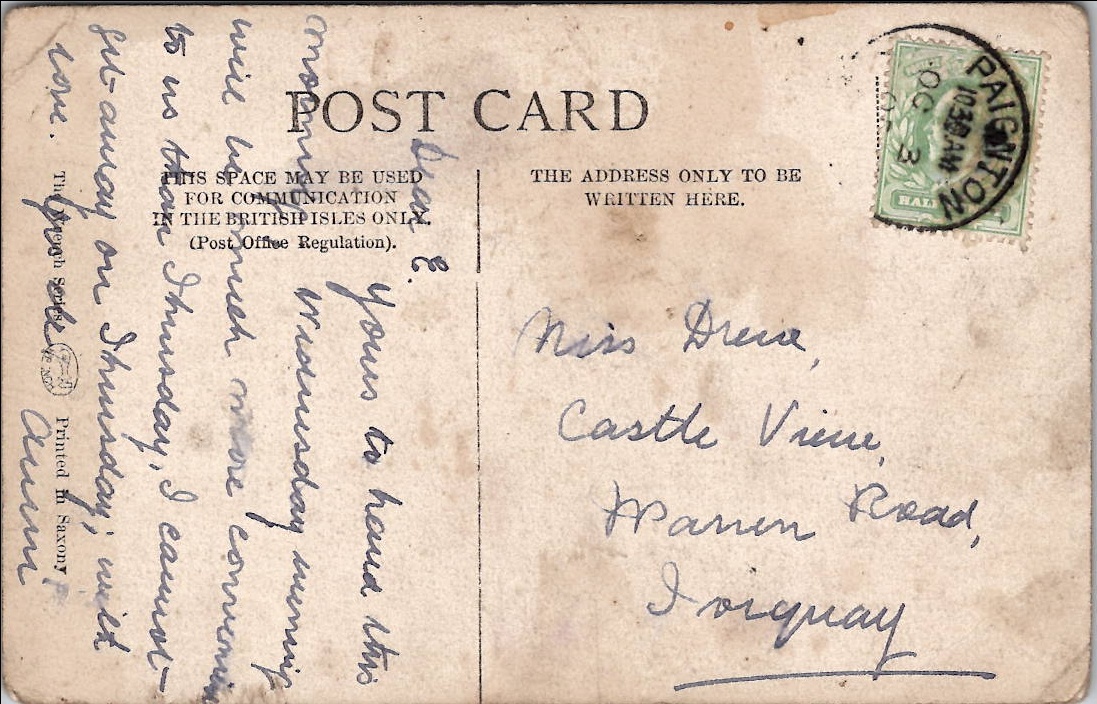 POST CARD
THIS SPACE MAY BE USED
FOR COMMUNICATION
IN THE BRITISH ISLES ONLY.
(Post Office Regulation).
THE ADDRESS ONLY TO BE
WRITTEN HERE.
PAIGNTON
1030AM
OC 3
HALF
Miss Drew,
Castle View,
Warren Road,
Torquay
Dear E.
Yours to hand this
morning Wednesday evening
will be much more convenient
to us than Thursday, I cannot
get away on Thursday; with
love.
Annie
Series
Printed in Saxony